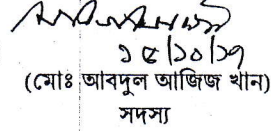 ১৫/১০/১৭
(মোঃ আবদুল আজিজ খান)
সদস্য